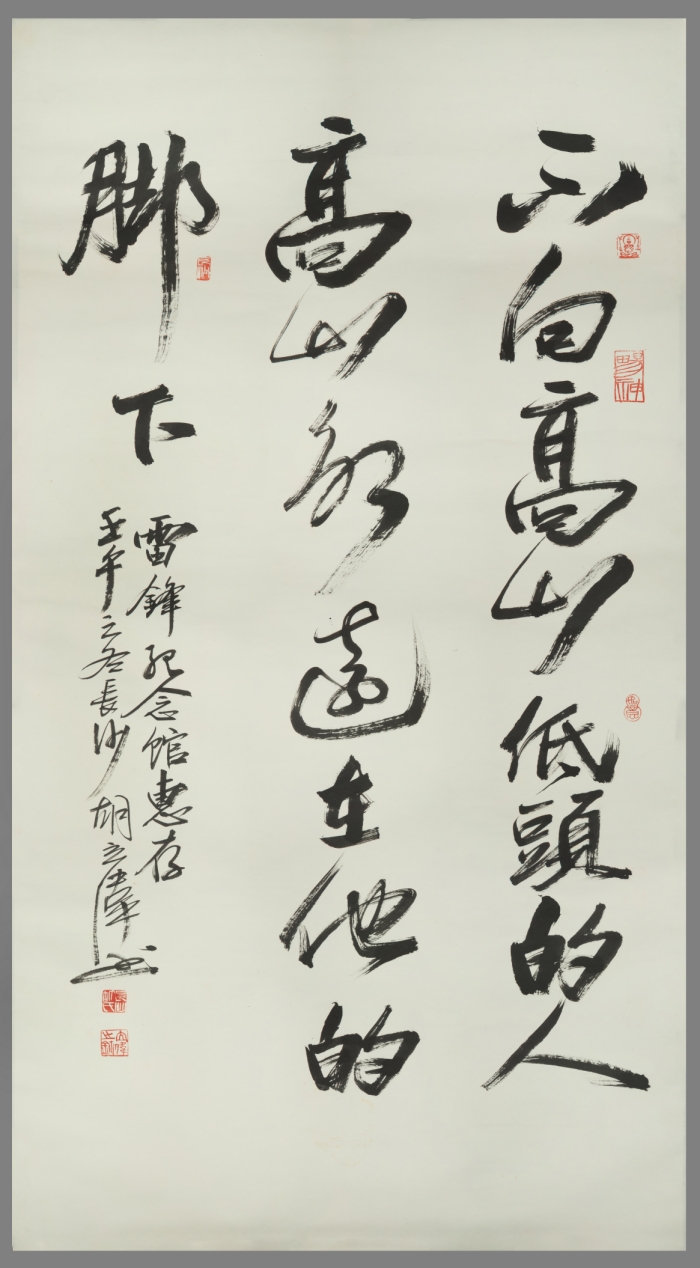 不向高山低頭的人
高山永遠在他的
脚下
雷鋒紀念館惠存
壬午之冬長沙胡立偉书